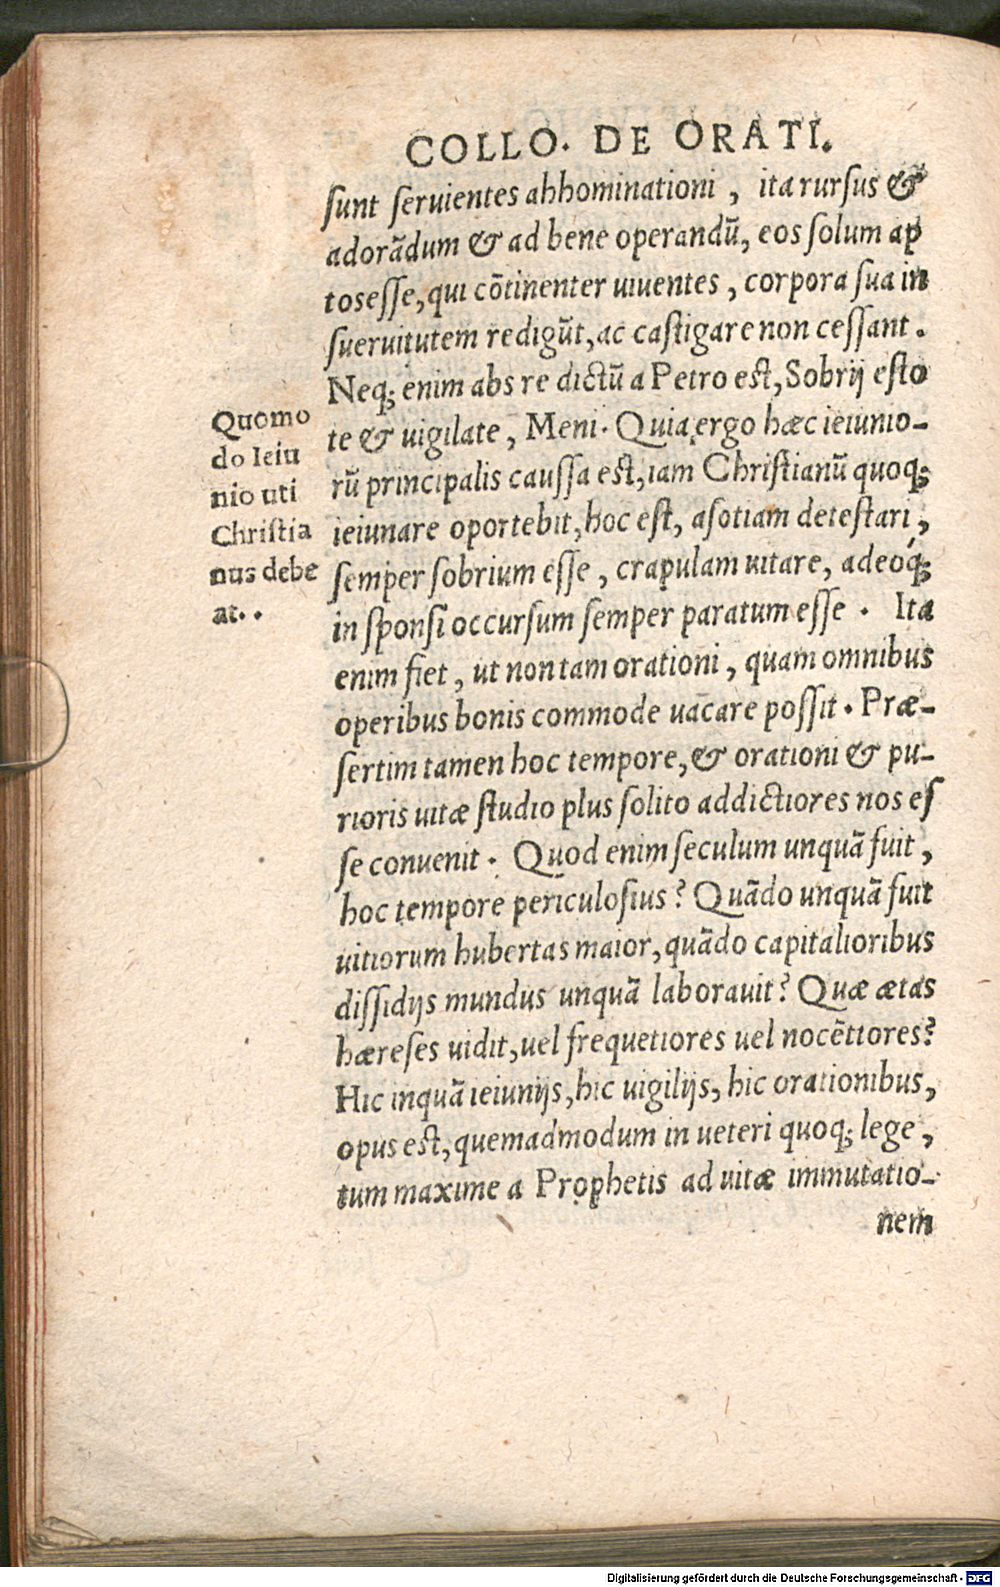 COLLO. DE ORATI.
sunt seruientes abhominationi, ita rursus &
adorādum & ad bene operandū, eos solum ap
tosesse, qui cōtinenter uiuentes, corpora sua in
sueruitutem redigūt, ac castigare non cessant.
Neq; enim abs re dictū a Petro est, Sobrij esto
te & uigilate, Meni. Quia ergo hæc ieiunio-
rū principalis caussa est, iam Christianū quoq;
ieiunare oportebit, hoc est, asotiam detestari,
semper sobrium esse, crapulam uitare, adeoq́;
in sponsi occursum semper paratum esse. Ita
enim fiet, ut non tam orationi, quam omnibus
operibus bonis commode uacare possit. Præ-
sertim tamen hoc tempore, & orationi & pu-
rioris uitæ studio plus solito addictiores nos es
se conuenit. Quod enim seculum unquā fuit,
hoc tempore periculosius? Quādo unquā fuit
uitiorum hubertas maior, quādo capitalioribus
dissidijs mundus unquā laborauit? Quæ ætas
hæreses uidit, uel frequetiores uel nocētiores?
Hic inquā ieiunijs, hic uigilijs, hic orationibus,
opus est, quemadmodum in ueteri quoq; lege,
tum maxime a Prophetis ad uitæ immutatio-
nem
Quomo
do Ieiu
nio uti
Christia
nus debe
at..
Digitalisierung gefördert durch die Deutsche Forschungsgemeinschaft - DFG